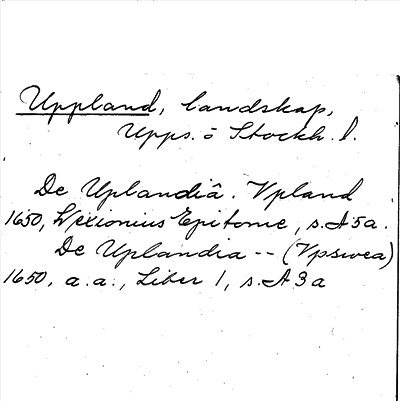 Uppland, landskap,
Upps. o Stockh. l.
De Uplandiâ. Vpland
1650, Wexionius Epitome, s. A5a.
De Uplandia -- (Vpswea)
1650, a.a., Liber 1, s. A3a